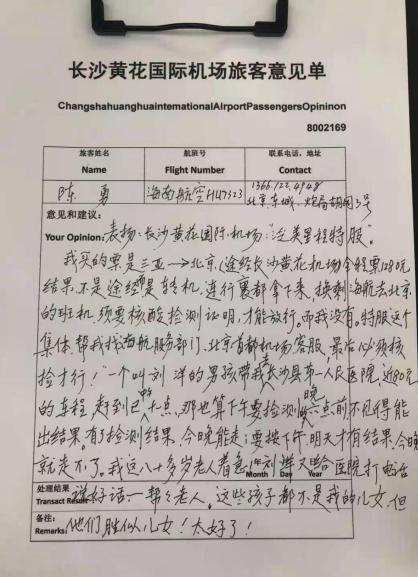 长沙黄花国际机场旅客意见单
ChangshahuanghuainternationalAirportPassengersOpininon
8002169
旅客姓名 航班号 联系电话，地址
Name Flight Number Contact
陈勇 海南航空HU7323 1366.122.4948
北京东城炮局胡同3号
意见和建议：
Your Opinion: 表扬：长沙黄花国际机场："泛美星程特服"。
我买的票是三亚→北京（途经长沙黄花机场）全程票1280元
结果，不是途经是转机，连行裹都拿下来，换剩海航去北京
的班机，须要核酸检测证明，才能放行。而我没有。特服这个
集体，帮我找海航服务部门、北京首都机场客服，最后必须核
检才行！一个叫刘洋的男孩带我去长沙县第一人民医院，近80元
的车程，赶到已中午十二点，那也算下午要检测，晚六点前不见得能
出结果，有了检测结果，今晚能走；要按下午，明天才有结果，今晚
就走不了。我这八十多岁老人着急！刘洋又给医院打电话
Month Day Year
处理结果
Transact Result
说好话—帮々老人。这些孩子都不是我的儿女，但
备注：
Remarks:
他们胜似儿女！太好了！